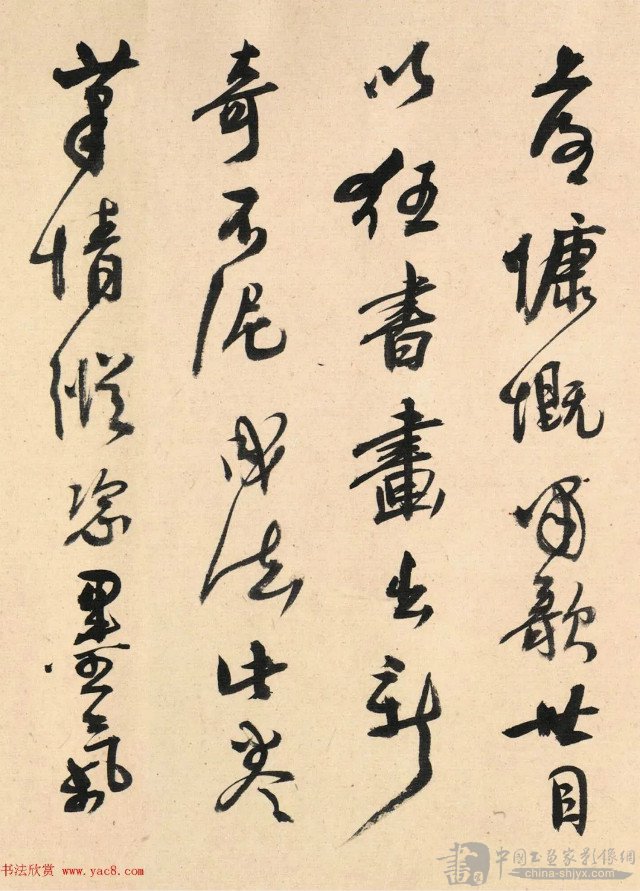 慷慨嘯歌世目
以狂書畫出新
奇不泥成法此卷
筆情縱恣墨氣
书法欣赏 www.yac8.com
書 中国书画家影像網
china-shjyx.com